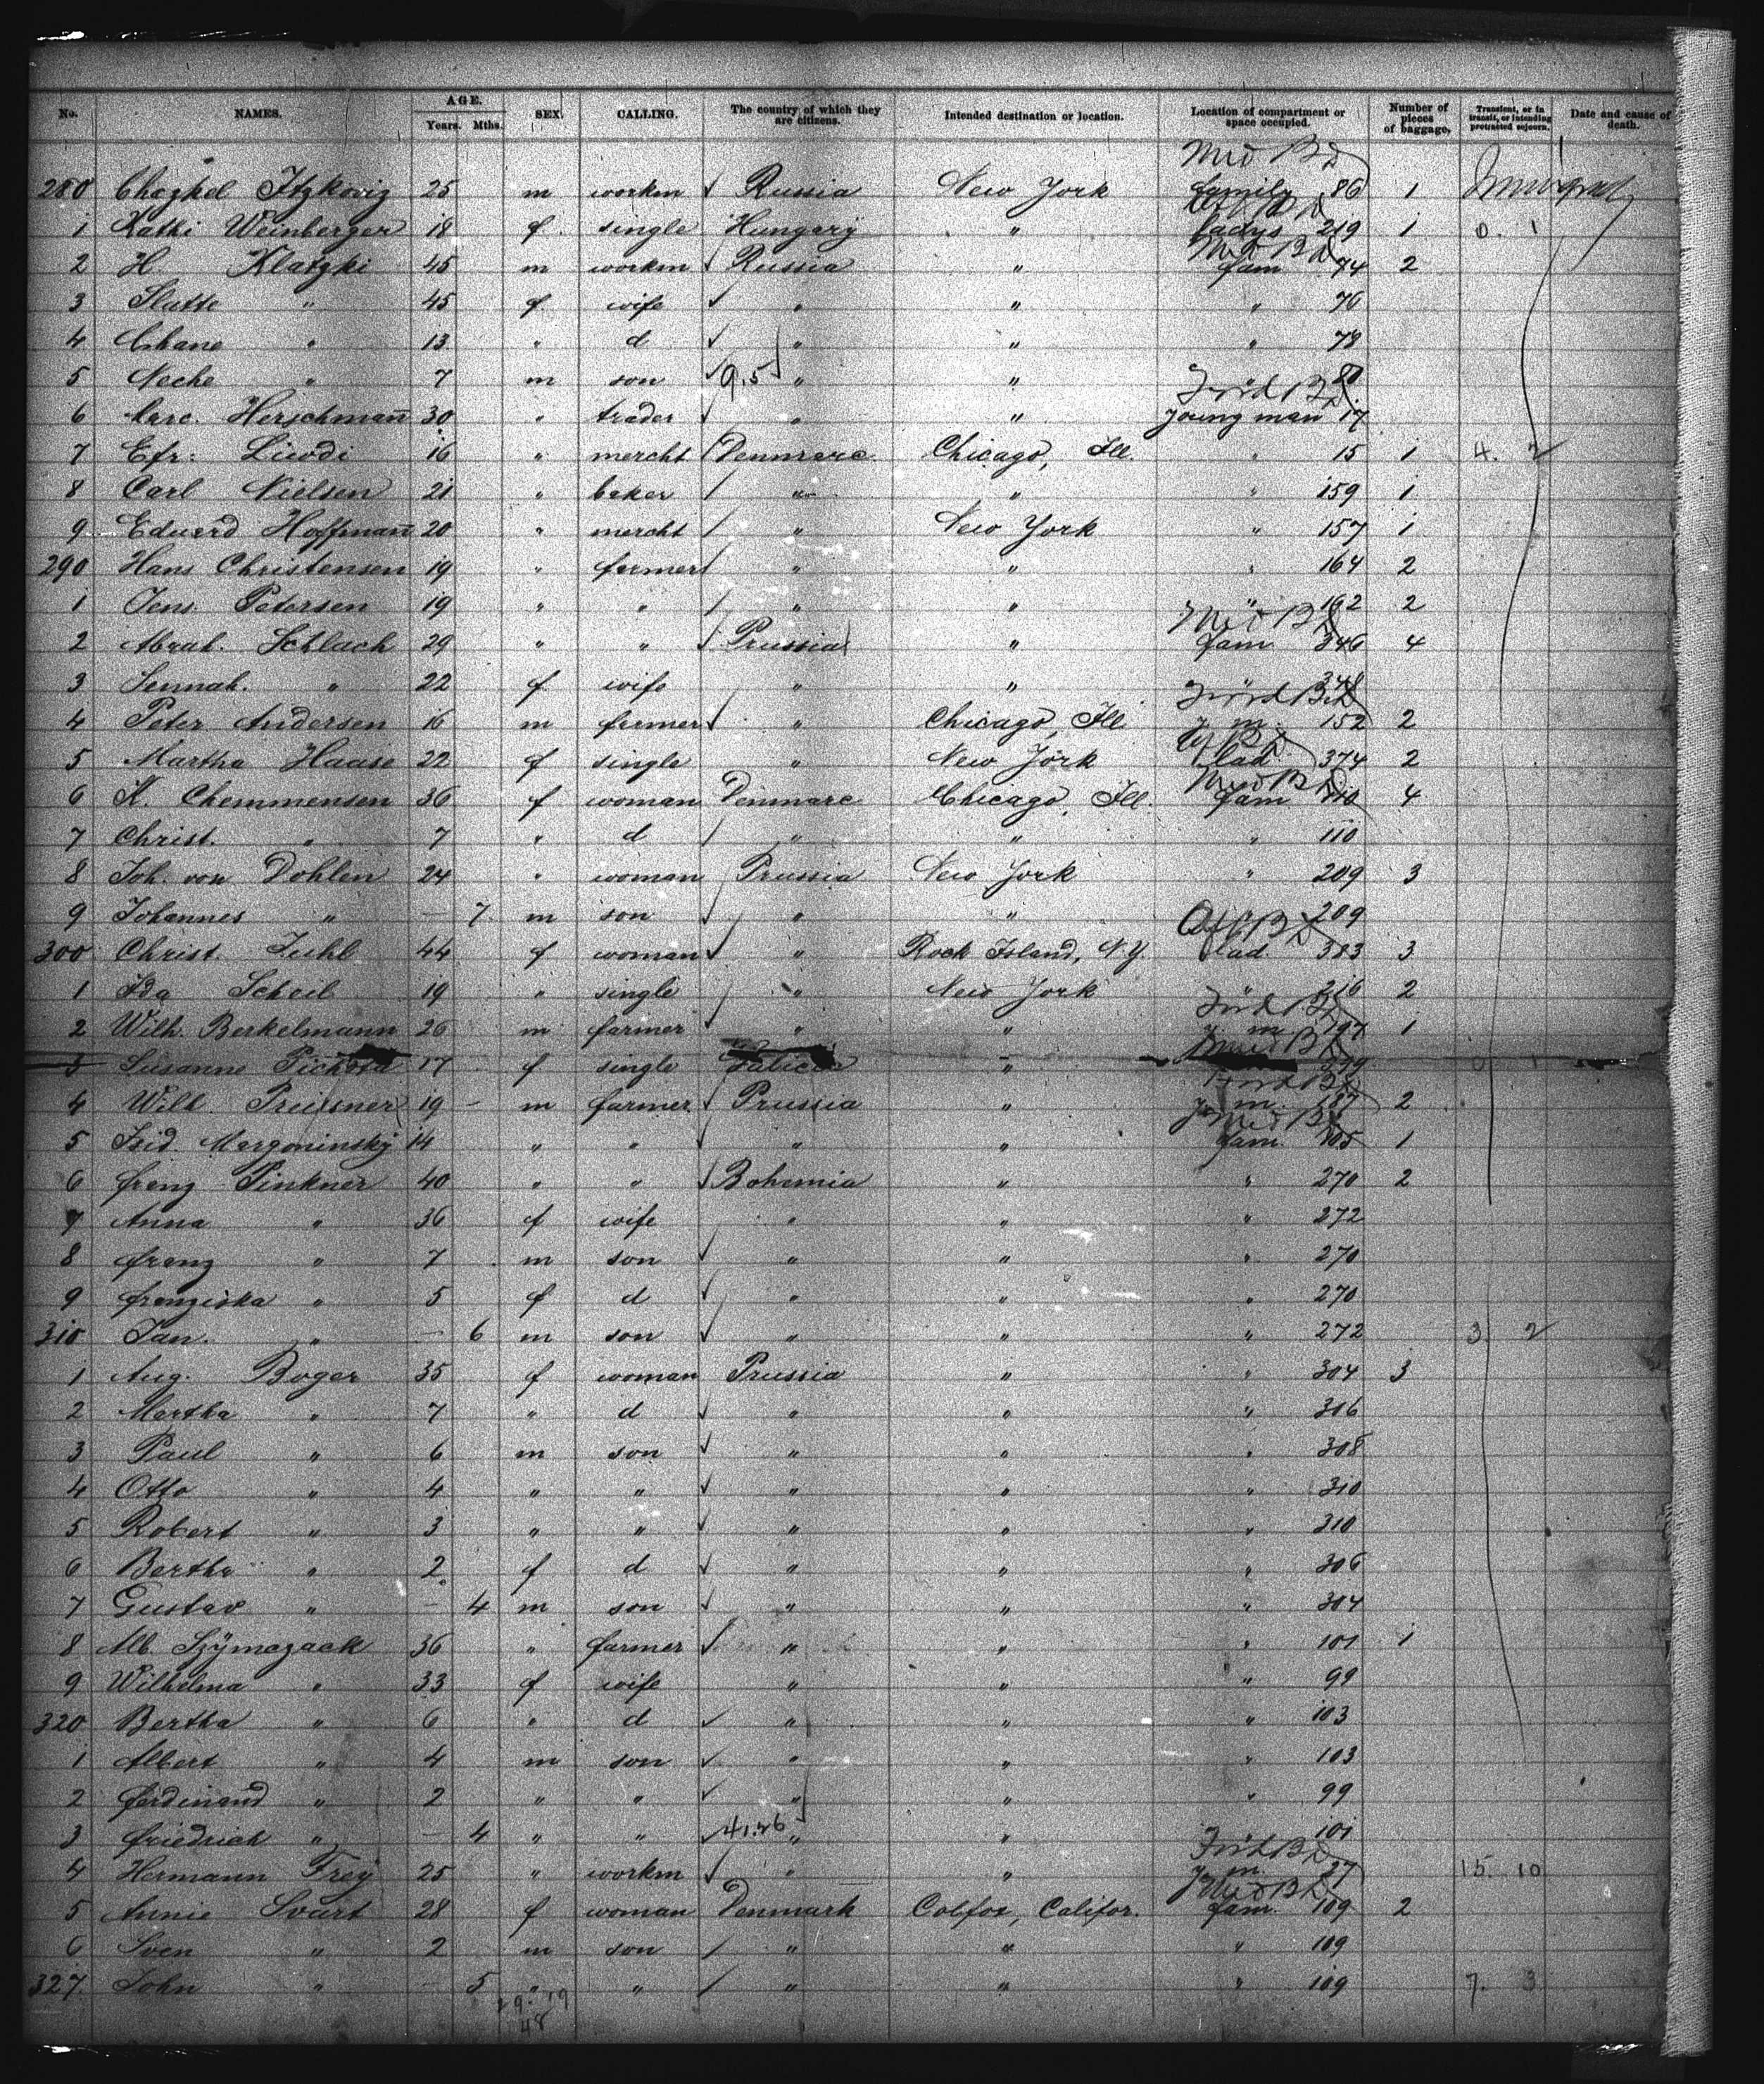 No. NAMES. AGE. Years. Mths. SEX. CALLING. The country of which they are citizens. Intended destination or location. Location of compartment or space occupied. Number of pieces of baggage. Transient, or in transit, or intending protracted sojourn. Date and cause of death.
280 Chazkel Itzkoviz 25 m workm Russia New York family 86 1
1 Kathi Weinberger 18 f single Hungary " ladys 219 1 0. 1
2 H. Klatzki 45 m workm Russia " fam 74 2
3 Slatte " 45 f wife " " " 76
4 Chane " 13 " d " " " 78
5 Neche " 7 m son 9.5 " " 80
6 Herschmann 30 " trader " " young man 17
7 Efr. 16 " mercht Denmarc Chicago, Ill. " 15 1 4. 2
8 Carl Nielsen 21 " baker " " " 159 1
9 Eduard Hoffmann 20 " mercht " New York " 157 1
290 Hans Christensen 19 " farmer " " " 164 2
1 Jens Petersen 19 " " " " " 162 2
2 Abrah. Schlach 29 " " Prussia " fam 346 4
3 Sennah. " 22 f wife " " " 348
4 Peter Andersen 16 m farmer " Chicago, Ill. y. m. 152 2
5 Martha Haase 22 f single " New York lad 374 2
6 K. Chemmensen 36 f woman Denmarc Chicago, Ill. fam 110 4
7 Christ. " 7 " d " " " 110
8 Joh. von Dohlen 24 " woman Prussia New York " 209 3
9 Johannes " — 7 m son " " 209
300 Christ. Juhl 44 f woman " Rock Island, N.Y. lad. 383 3
1 Ida Scheil 19 " single " New York " 216 2
2 Wilh. Berkelmann 26 m farmer " " y. m. 197 1
3 Susanne 17 f single Galicia "
4 Wilh. Preissner 19 - m farmer Prussia " y. m. 187 2
5 Isid. Margoninsky 14 " " " " fam. 105 1
6 franz Pinkner 40 " " Bohemia " " 270 2
7 Anna " 36 f wife " " " 272
8 franz " 7 m son " " " 270
9 franziska " 5 f d " " " 270
310 Jan. " — 6 m son " " " 272 3. 2
1 Aug. Boger 35 f woman Prussia " " 304 3
2 Martha " 7 " d " " " 306
3 Paul " 6 m son " " " 308
4 Otto " 4 " " " " " 310
5 Robert " 3 " " " " " 310
6 Bertha " 2 f d " " " 306
7 Gustav " — 4 m son " " " 304
8 Alb. Szymczack 36 " farmer " " " 101 1
9 Wilhelma " 33 f wife " " " 99
320 Bertha " 6 " d " " " 103
1 Albert " 4 m son " " " 103
2 ferdinand " 2 " " " " " 99
3 friedrich " — 4 " " 41.26 " " " 101
4 Hermann Frey 25 " workm " " y. m. 27 15. 10
5 Annie Svart 28 f woman Denmark Colfox, Califor. fam. 109 2
6 Sven " 2 m son " " " 109
327. John " — 5 " " " " " 109 7. 3
48